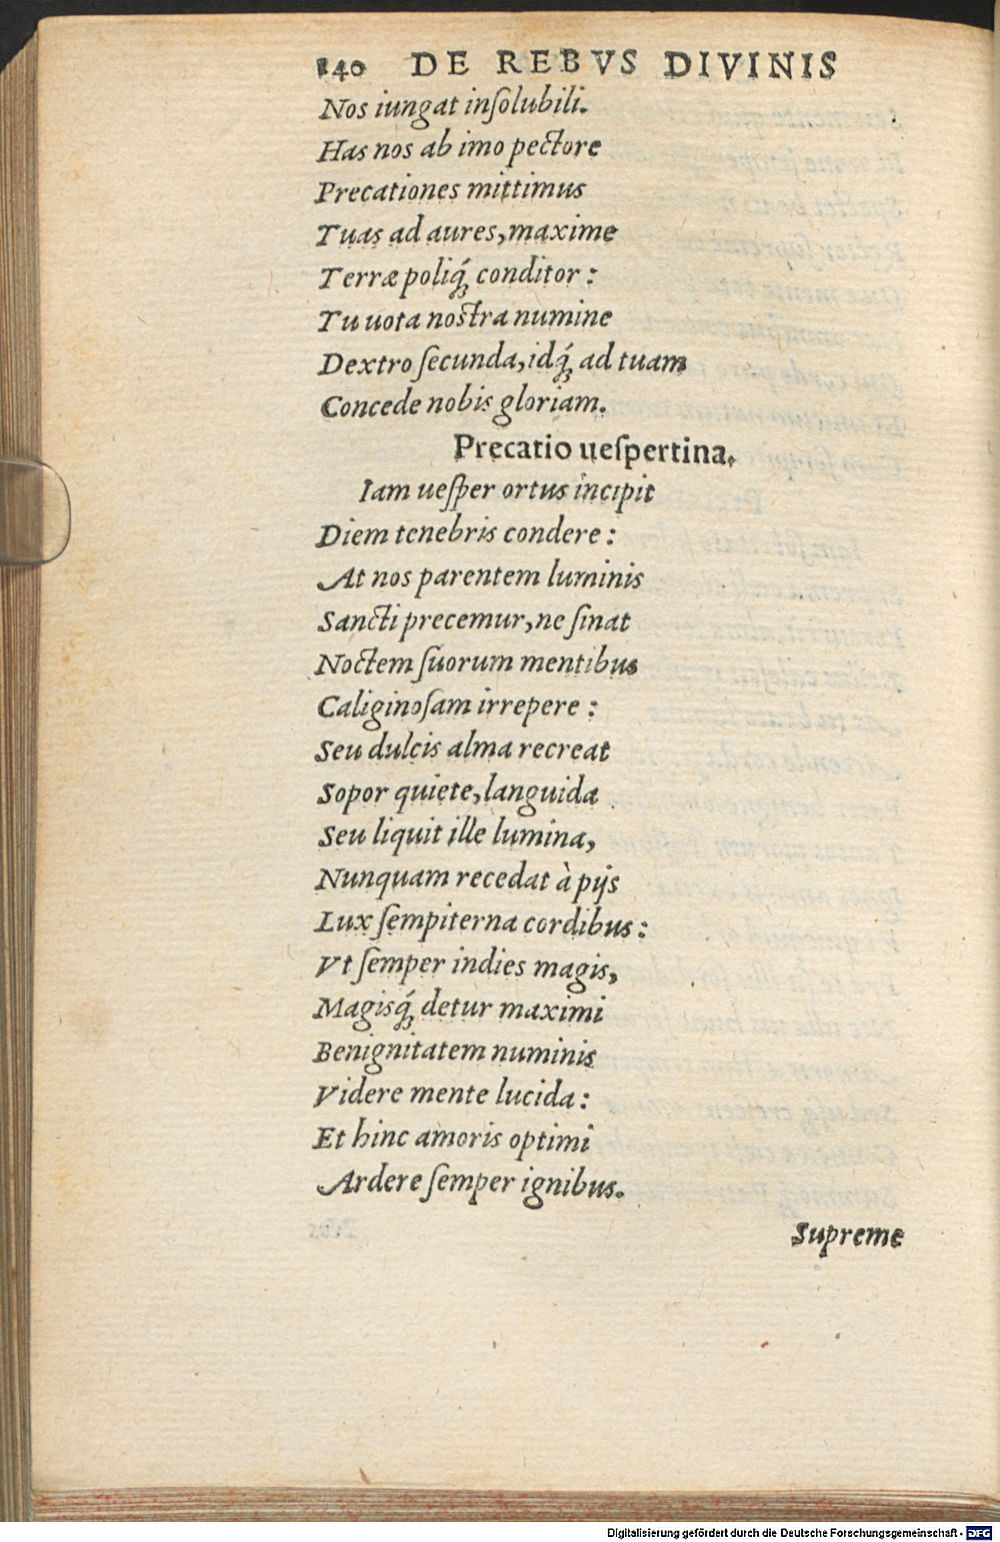 140 DE REBVS DIVINIS
Nos iungat inſolubili.
Has nos ab imo pectore
Precationes mittimus
Tuas ad aures, maxime
Terræ poliq́; conditor:
Tu uota nostra numine
Dextro ſecunda, idq́; ad tuam
Concede nobis gloriam.
Precatio ueſpertina.
Iam ueſper ortus incipit
Diem tenebris condere:
At nos parentem luminis
Sancti precemur, ne ſinat
Noctem ſuorum mentibus
Caliginoſam irrepere:
Seu dulcis alma recreat
Sopor quiete, languida
Seu liquit ille lumina,
Nunquam recedat à pijs
Lux ſempiterna cordibus:
Vt ſemper indies magis,
Magisq́; detur maximi
Benignitatem numinis
Videre mente lucida:
Et hinc amoris optimi
Ardere ſemper ignibus.
Supreme
Digitalisierung gefördert durch die Deutsche Forschungsgemeinschaft - DFG